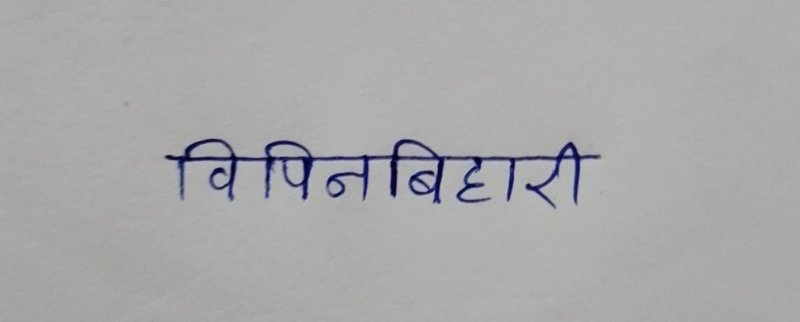 विपिनबिहारी